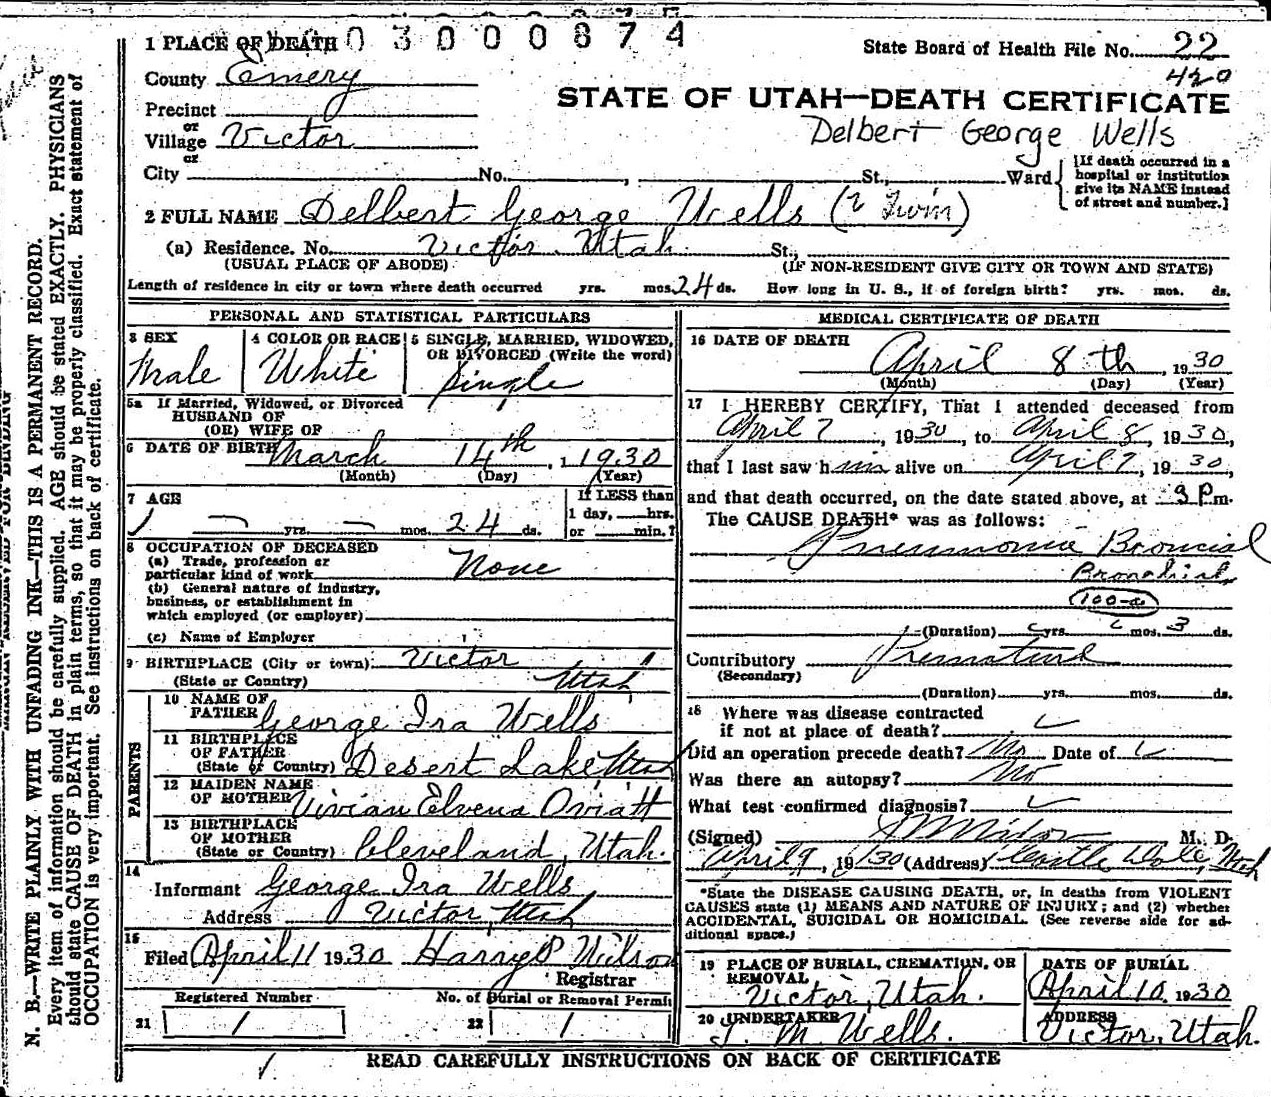 0 3 0 0 0 8 7 4
1 PLACE OF DEATH
State Board of Health File No. 22
420
County Emery
STATE OF UTAH—DEATH CERTIFICATE
Precinct
Delbert George Wells
or
Village Victor
or
City No. , St., Ward
[If death occurred in a hospital or institution give its NAME instead of street and number.]
2 FULL NAME Delbert George Wells (2 Twin)
(a) Residence. No. Victor. Utah. St.,
(USUAL PLACE OF ABODE) (IF NON-RESIDENT GIVE CITY OR TOWN AND STATE)
Length of residence in city or town where death occurred yrs. mos. 24 ds. How long in U. S., if of foreign birth? yrs. mos. ds.
PERSONAL AND STATISTICAL PARTICULARS
3 SEX
Male
4 COLOR OR RACE
White
5 SINGLE, MARRIED, WIDOWED,
OR DIVORCED (Write the word)
Single
5a If Married, Widowed, or Divorced
HUSBAND OF
(OR) WIFE OF
6 DATE OF BIRTH March 14th, 1930
(Month) (Day) (Year)
7 AGE
yrs. mos. 24 ds.
If LESS than
1 day, hrs.
or min.?
8 OCCUPATION OF DECEASED
(a) Trade, profession or
particular kind of work None
(b) General nature of industry,
business, or establishment in
which employed (or employer)
(c) Name of Employer
9 BIRTHPLACE (City or town) Victor
(State or Country) Utah
PARENTS
10 NAME OF
FATHER George Ira Wells
11 BIRTHPLACE
OF FATHER
(State or Country) Desert Lake Utah
12 MAIDEN NAME
OF MOTHER Vivian Elvena Oviatt
13 BIRTHPLACE
OF MOTHER
(State or Country) Cleveland, Utah.
14
Informant George Ira Wells
Address Victor, Utah
15
Filed April 11 1930 Harry P Wilson
Registrar
Registered Number
21 1
No. of Burial or Removal Permit
22 1
MEDICAL CERTIFICATE OF DEATH
16 DATE OF DEATH
April 8th, 1930
(Month) (Day) (Year)
17 I HEREBY CERTIFY, That I attended deceased from
April 7, 1930, to April 8, 1930,
that I last saw him alive on April 7, 1930,
and that death occurred, on the date stated above, at 3 Pm.
The CAUSE DEATH* was as follows:
Pneumonia Broncial
Bronchial
(Duration) yrs. mos. 3 ds.
Contributory Premature
(Secondary)
(Duration) yrs. mos. ds.
18 Where was disease contracted
if not at place of death?
Did an operation precede death? No Date of
Was there an autopsy? No
What test confirmed diagnosis?
(Signed) M. D.
April 9, 1930 (Address) Castle Dale, Utah
*State the DISEASE CAUSING DEATH, or, in deaths from VIOLENT
CAUSES state (1) MEANS AND NATURE OF INJURY; and (2) whether
ACCIDENTAL, SUICIDAL OR HOMICIDAL. (See reverse side for ad-
ditional space.)
19 PLACE OF BURIAL, CREMATION, OR
REMOVAL
Victor, Utah.
DATE OF BURIAL
April 10, 1930
20 UNDERTAKER
J. M. Wells.
ADDRESS
Victor, Utah.
READ CAREFULLY INSTRUCTIONS ON BACK OF CERTIFICATE
N. B.—WRITE PLAINLY WITH UNFADING INK—THIS IS A PERMANENT RECORD.
Every item of information should be carefully supplied. AGE should be stated EXACTLY. PHYSICIANS
should state CAUSE OF DEATH in plain terms, so that it may be properly classified. Exact statement of
OCCUPATION is very important. See instructions on back of certificate.